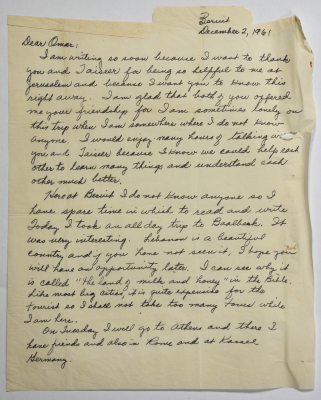 Beruit
December 2, 1961
Dear Omar:
I am writing so soon because I want to thank
you and Taisser for being so helpful to me at
Jerusalem and because I want you to know this
right away. I am glad that both of you offered
me your friendship for I am sometimes lonely on
this trip when I am somewhere where I do not know
anyone. I would enjoy many hours of talking with
you and Taisser because I know we could help each
other to learn many things and understand each
other much better.
Here at Beruit I do not know anyone so I
have spare time in which to read and write
Today I took an all day trip to Baalback. It
was very interesting. Lebanon is a beautiful
country and if you have not seen it, I hope you
will have an opportunity later. I can see why it
is called "the land of milk and honey" in the Bible.
Like most big cities, it is quite expensive for the
tourist so I shall not take too many tours while
I am here.
On Tuesday I will go to Athens and there I
have friends and also in Rome and at Kassel
Germany.